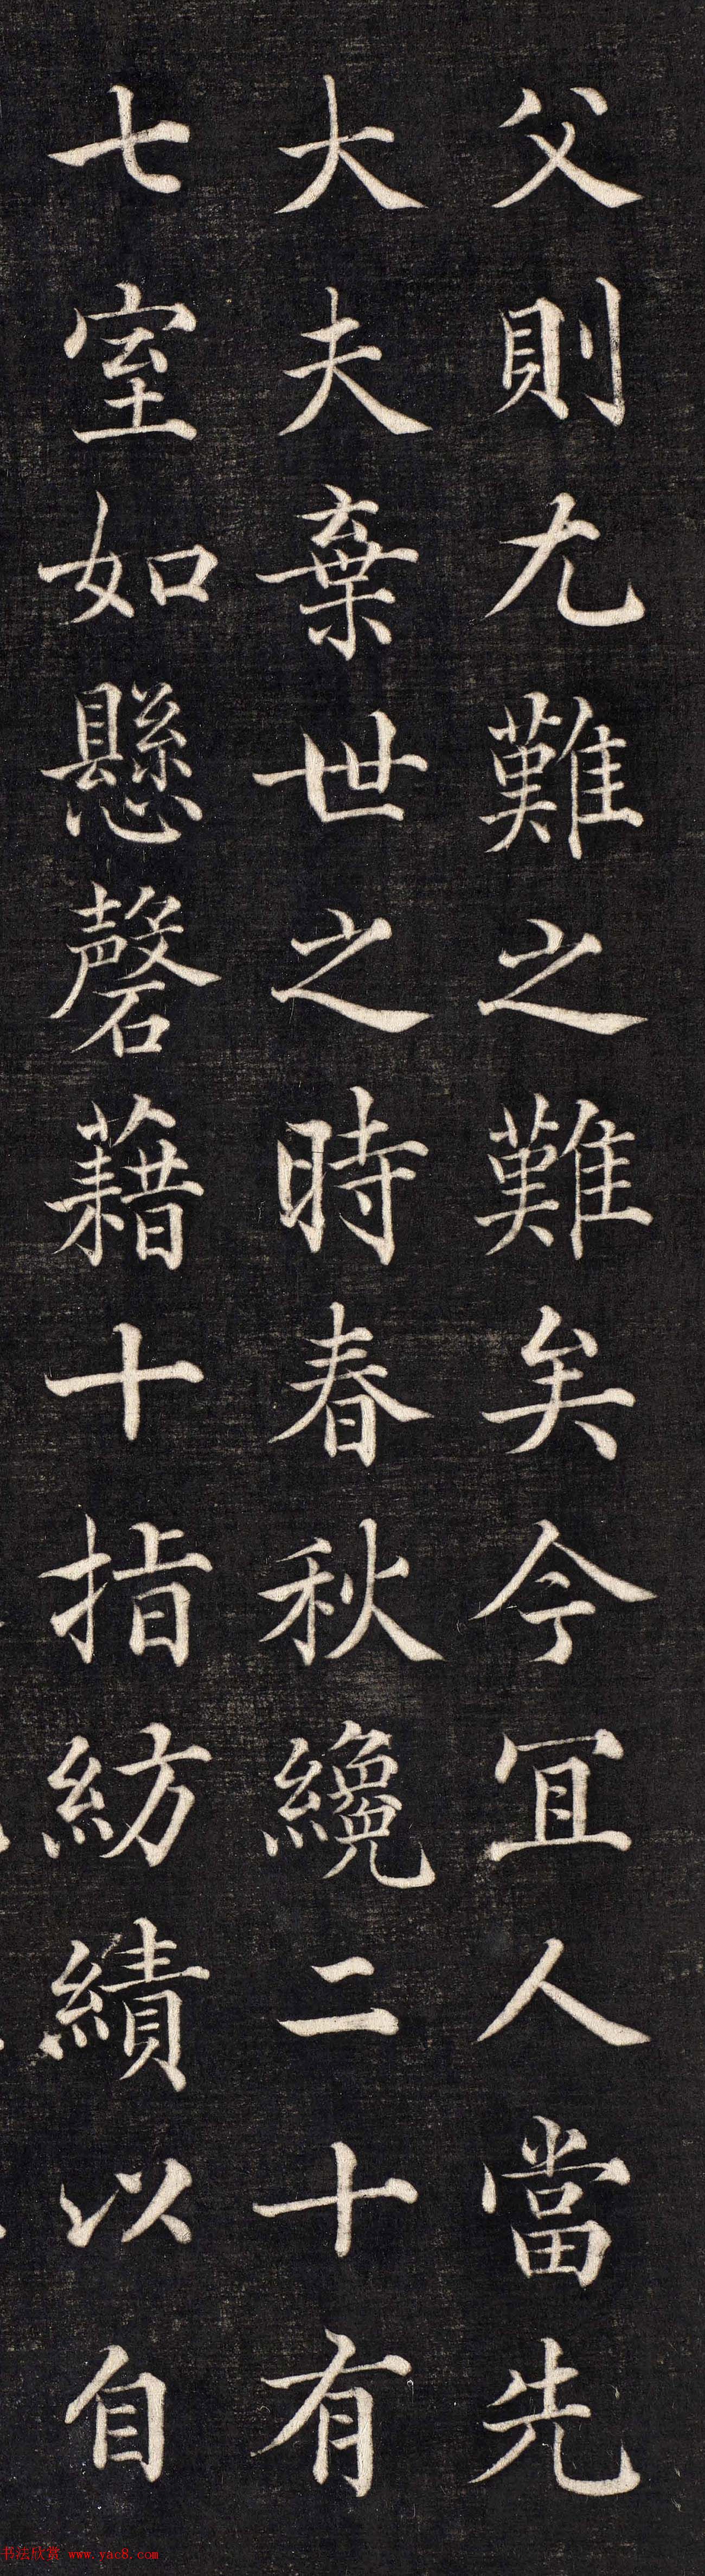 父則尤難之難矣今冝人當先
大夫棄世之時春秋纔二十有
七室如懸磬藉十指紡績以自
书法欣赏 www.yac8.com